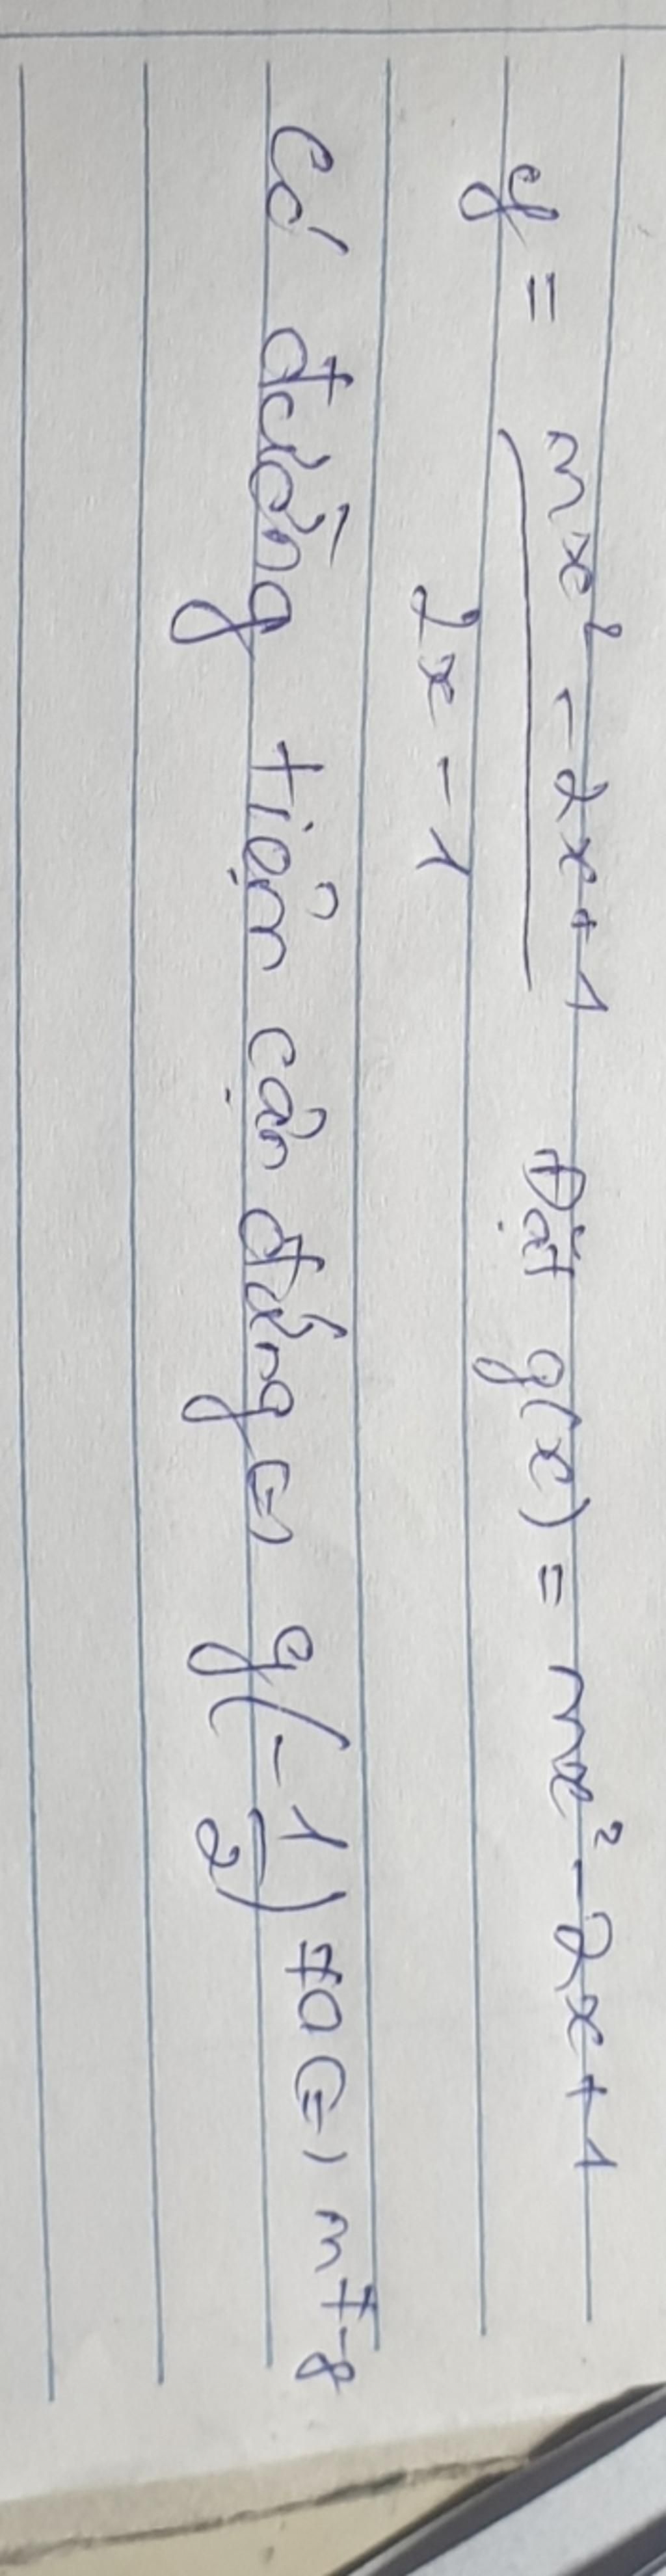 y = mx² - 2x + 1 Đặt g(x) = mx² - 2x + 1
2x - 1
Có đường tiệm cận đứng <=> g(-1/2) ≠ 0 <=> m ≠ -8